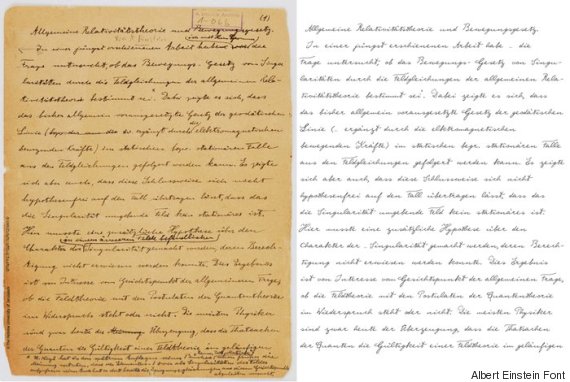 (1)
1-066
Allgemeine Relativitätstheorie und Bewegungsgesetz.
In einer jüngst erschienenen Arbeit haben die
Frage untersucht, ob das Bewegungs-Gesetz von Singu-
laritäten durch die Feldgleichungen der allgemeinen Rela-
tivitätstheorie bestimmt sei. Dabei zeigte es sich, dass
das bisher allgemein vorausgesetzte Gesetz der geodätischen
Linie ergänzt durch die elektromagnetischen
bewegenden Kräfte) im statischen bezw. stationären Falle
aus den Feldgleichungen gefolgert werden kann. Es zeigte
sich aber auch, dass diese Schlussweise sich nicht
hypothesenfrei auf den Fall übertragen lässt, dass das
die Singularität umgebende Feld kein stationäres ist.
Hier musste eine zusätzliche Hypothese über den
Charakter der Singularität gemacht werden, deren Berech-
tigung nicht erwiesen werden konnte. Dies Ergebnis
ist von Interesse vom Gesichtspunkt der allgemeinen Frage,
ob die Feldtheorie mit den Postulaten der Quantentheorie
im Widerspruch steht oder nicht. Die meisten Physiker
sind zwar heute der Überzeugung, dass die Thatsachen
der Quanten die Gültigkeit einer Feldtheorie im geläufigen
Allgemeine Relativitätstheorie und Bewegungsgesetz.
In einer jüngst erschienenen Arbeit habe - die
Frage untersucht, ob das Bewegungs-Gesetz von Singu-
laritäten durch die Feldgleichungen der allgemeinen Rela-
tivitätstheorie bestimmt sei. Dabei zeigte es sich, dass
das bisher allgemein vorausgesetzte Gesetz der geodätischen
Linie (. ergänzt durch die elektromagnetischen
bewegenden Kräfte) im statischen bezw. stationären Falle
aus den Feldgleichungen gefolgert werden kann. Es zeigte
sich aber auch, dass diese Schlussweise sich nicht
hypothesenfrei auf den Fall übertragen lässt, dass das
die Singularität umgebende Feld kein stationäres ist.
Hier musste eine zusätzliche Hypothese über den
Charakter der . Singularität gemacht werden, deren Berech-
tigung nicht erwiesen werden konnte. Dies Ergebnis
ist von Interesse vom Gesichtspunkt der allgemeinen Frage,
ob die Feldtheorie mit den Postulaten der Quantentheorie
im Widerspruch steht oder nicht. Die meisten Physiker
sind zwar heute der Überzeugung, dass die Thatsachen
der Quanten die Gültigkeit einer Feldtheorie im geläufigen
Albert Einstein Font